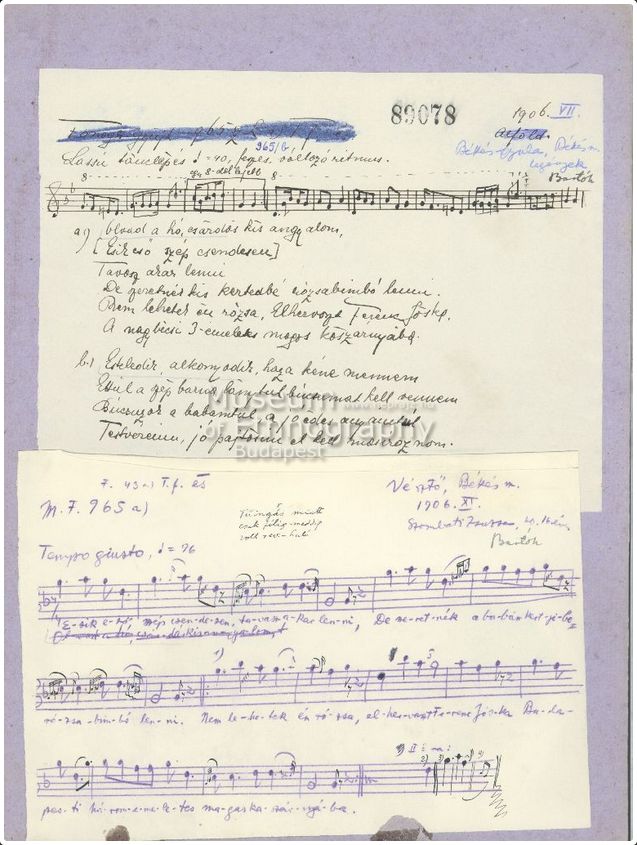 89078
1906. VII.
Alföld.
965/b.
Békés-Gyula, Békés m.
Lassú tánclépés ♩=40, feges. változó ritmus.
legények
Bartók
8
8
a.) olvad a hó, csárdás kis angyalom,
[Esik eső szép csendesen]
Tavasz akar lenni
De szeretnék kis kertedbe rózsabimbó lenni.
Nem lehetek én rózsa, Elhervaszt Ferenc Jóska,
A nagybécsi 3-emeletes magos kaszárnyába.
b.) Esteledik, alkonyodik, haza kéne mennem
Ettül a szép barna lánytul búcsúmat kell vennem
Búcsúzok a babámtul, a jó édes anyámtul
Testvéreim, jó pajtásim el kell masíroznom.
Museum
of Ethnography
Budapest
7. 43a) T.f. és
M.F. 965 a)
Vésztő, Békés m.
1906. XI.
Szombati Zsuzsa,
Bartók
csak félig-meddig
volt
Tempo giusto, ♩=96
E-sik e-ső, szép csen-de-sen, ta-vasz a-kar len-ni, De sze-ret-nék a ba-bám kert-jé-be
ró-zsa-bim-bó len-ni. Nem le-he-tek én ró-zsa, el-her-vaszt Fe-renc Jós-ka Bu-da-
pes-ti há-rom-e-me-le-tes ma-gas ka-szár-nyá-ba.